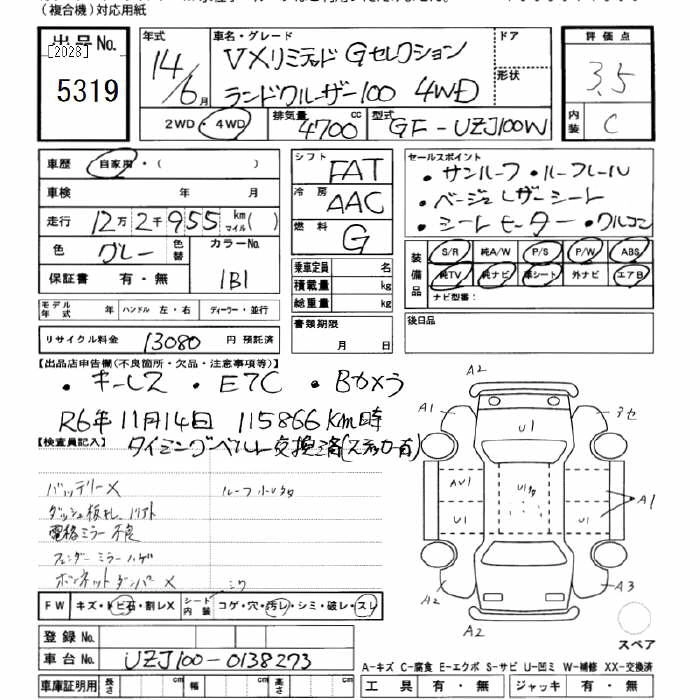 （複合機）対応用紙
出品No.
［2028］
5319
年式
14/6月
車名・グレード
VXリミテッド Gセレクション
ランドクルーザー100 4WD
ドア
形状
評価点
3.5
内装
C
2WD・4WD
排気量
4700 cc
型式
GF-UZJ100W
車歴
自家用・（ ）
車検 年 月
走行 12万2千955 km マイル（ ）
色 グレー
色替
カラーNo.
1B1
保証書 有・無
シフト FAT
冷房 AAC
燃料 G
乗車定員 名
積載量 kg
総重量 kg
セールスポイント
・サンルーフ ・ルーフレール
・ベージュレザーシート
・シートヒーター ・クルコン
装備品
S/R 純A/W P/S P/W ABS
純TV 純ナビ 革シート 外ナビ エアB
ナビ型番：
モデル年式 年 ハンドル 左・右 ディーラー・並行
リサイクル料金 13080 円 預託済
書類期限
月 日
後日品
【出品店申告欄(不良箇所・欠品・注意事項等)】
・キーレス ・ETC ・Bカメラ
R6年11月14日 115866Km時
タイミングベルト交換済(ステッカー有)
【検査員記入】
バッテリーX
ルーフ小Uタ
電格ミラー不良
フェンダーミラーハゲ
ボンネットダンパーX
シワ
FW キズ・トビ石・割レX
シート内装
コゲ・穴・汚レ・シミ・破レ・スレ
登録No.
車台No. UZJ100-0138273
車庫証明用 長さ cm 幅 cm 高さ cm
A2
A1
U1
アセ
AU1
U1
U1タ
U1
U1
A1
A2
A2
A3
スペア
A-キズ C-腐食 E-エクボ S-サビ U-凹ミ W-補修 XX-交換済
工具 有・無 ジャッキ 有・無